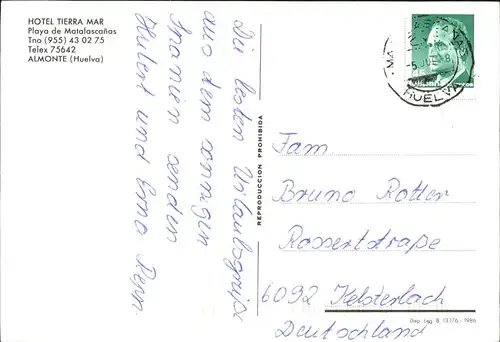 HOTEL TIERRA MAR
Playa de Matalascañas
Tno (955) 43 02 75
Telex 75642
ALMONTE (Huelva)
HUELVA
Die besten Urlaubsgrüße
aus dem sonnigen
Spanien senden
Hubert und Erna
REPRODUCCION PROHIBIDA
Fam
Bruno Rotter
Rossertstraße
6092 Kelsterbach
Deutschland
Dep. Leg. B. 13.176 - 1986